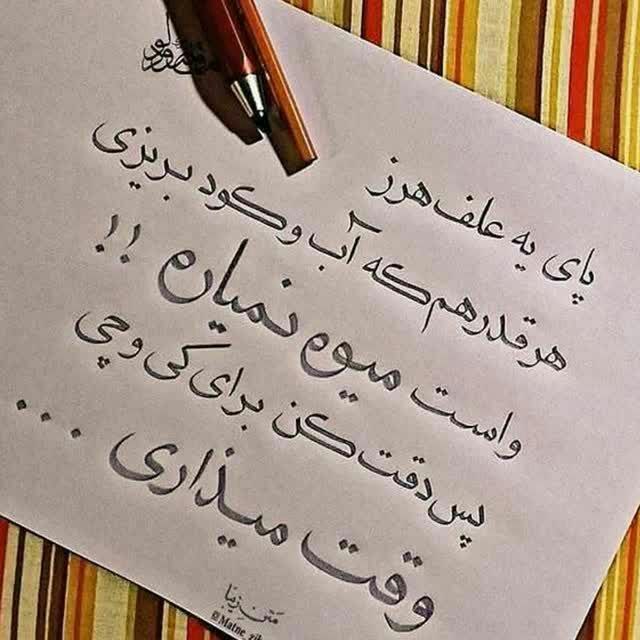 پای یه علف هرز
هر قدر هم که آب و کود بریزی
واست میوه نمیاره !!
پس دقت کن برای کی و چی
وقت میذاری ...
متن زیبا